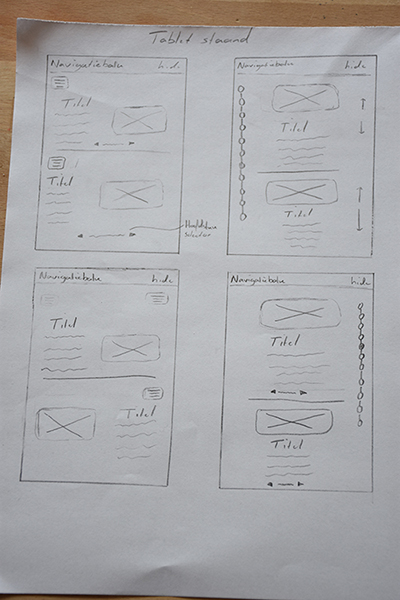 Tablet staand
Navigatiebalk hide
Titel
Titel
Hoofdstuk
selectie
Navigatiebalk hide
Titel
Titel
Navigatiebalk hide
Titel
Titel
Navigatiebalk hide
Titel
Titel